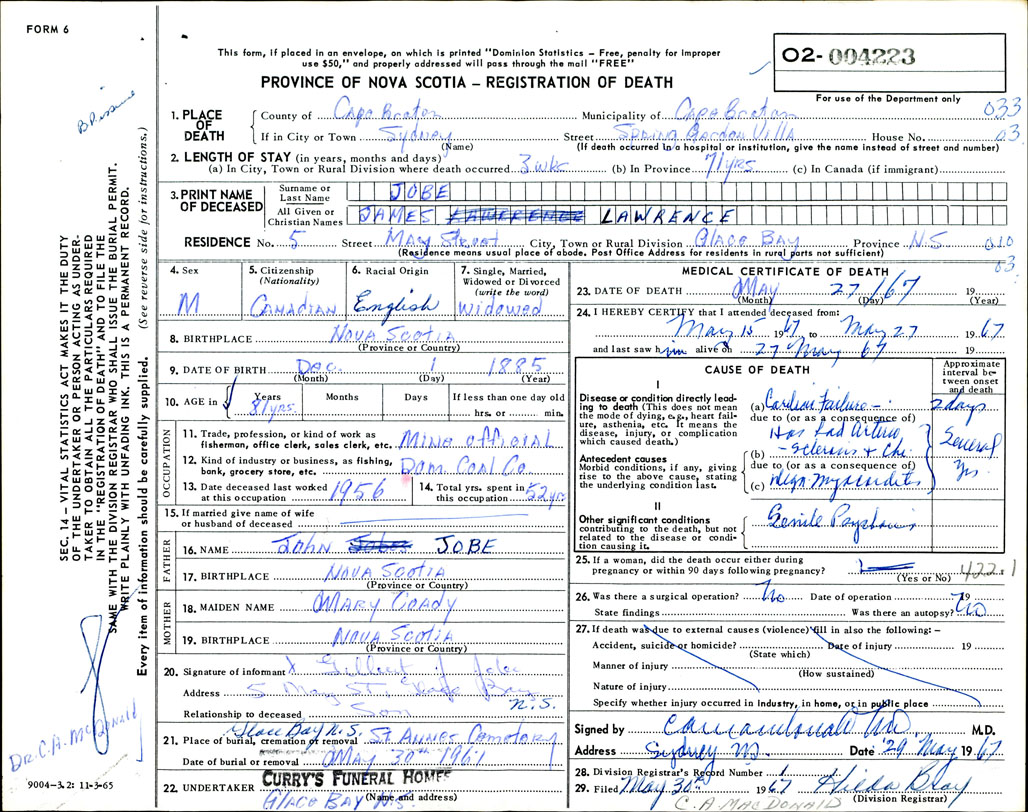 FORM 6
This form, if placed in an envelope, on which is printed "Dominion Statistics – Free, penalty for improper
use $50," and properly addressed will pass through the mail "FREE"
O2- 004223
For use of the Department only
PROVINCE OF NOVA SCOTIA – REGISTRATION OF DEATH
1. PLACE OF DEATH
County of Cape Breton Municipality of Cape Breton 033
If in City or Town Sydney Street Spring Garden Villa House No. 03
(Name) (If death occurred in a hospital or institution, give the name instead of street and number)
2. LENGTH OF STAY (in years, months and days)
(a) In City, Town or Rural Division where death occurred 3 wks (b) In Province 71 yrs (c) In Canada (if immigrant)
3. PRINT NAME OF DECEASED
Surname or Last Name JOBE
All Given or Christian Names JAMES LAWRENCE
RESIDENCE No. 5 Street May Street City, Town or Rural Division Glace Bay Province N.S 010
(Residence means usual place of abode. Post Office Address for residents in rural parts not sufficient)
03
4. Sex M
5. Citizenship (Nationality) CANADIAN
6. Racial Origin English
7. Single, Married, Widowed or Divorced (write the word) Widowed
8. BIRTHPLACE NOVA SCOTIA
(Province or Country)
9. DATE OF BIRTH Dec. 1 1885
(Month) (Day) (Year)
10. AGE in Years 81 yrs. Months Days If less than one day old hrs. or min.
OCCUPATION
11. Trade, profession, or kind of work as fisherman, office clerk, sales clerk, etc. Mine official
12. Kind of industry or business, as fishing, bank, grocery store, etc. Dom. Coal Co.
13. Date deceased last worked at this occupation 1956
14. Total yrs. spent in this occupation 52 yrs
15. If married give name of wife or husband of deceased
FATHER
16. NAME John JOBE
17. BIRTHPLACE NOVA SCOTIA
(Province or Country)
MOTHER
18. MAIDEN NAME MARY COADY
19. BIRTHPLACE NOVA SCOTIA
(Province or Country)
20. Signature of informant X Gilbert J Jobe
Address 5 May ST. Glace Bay N.S.
Relationship to deceased Son
21. Place of burial, cremation or removal Glace Bay N.S. St Annes Cemetery
Date of burial or removal May 30th 1967
22. UNDERTAKER CURRY'S FUNERAL HOME
(Name and address)
GLACE BAY N.S.
MEDICAL CERTIFICATE OF DEATH
23. DATE OF DEATH May 27/67 19
(Month) (Day) (Year)
24. I HEREBY CERTIFY that I attended deceased from:
May 15 1967 to May 27 1967
and last saw him alive on 27 May 67 19
CAUSE OF DEATH
Approximate interval between onset and death
I
Disease or condition directly leading to death (This does not mean the mode of dying, e.g., heart failure, asthenia, etc. It means the disease, injury, or complication which caused death.)
(a) Cardiac Failure – 2 days
due to (or as a consequence of)
Has had Arterio
Antecedent causes
Morbid conditions, if any, giving rise to the above cause, stating the underlying condition last.
(b) – Sclerosis & Chr. Several
due to (or as a consequence of) Yrs.
(c) degn. Myocarditis
II
Other significant conditions contributing to the death, but not related to the disease or condition causing it.
Senile Psychosis
25. If a woman, did the death occur either during pregnancy or within 90 days following pregnancy? 422.1
(Yes or No)
26. Was there a surgical operation? No Date of operation 19
State findings Was there an autopsy? No
27. If death was due to external causes (violence) fill in also the following: –
Accident, suicide or homicide? Date of injury 19
(State which)
Manner of injury
(How sustained)
Nature of injury
Specify whether injury occurred in industry, in home, or in public place
Signed by C A MacDonald MD. M.D.
Address Sydney NS. Date 29 May 1967
28. Division Registrar's Record Number 1
29. Filed May 30th 1967 Hilda Bray
(Division Registrar)
C. A. MacDONALD
SEC. 14 – VITAL STATISTICS ACT MAKES IT THE DUTY
OF THE UNDERTAKER OR PERSON ACTING AS UNDER-
TAKER TO OBTAIN ALL THE PARTICULARS REQUIRED
IN THE "REGISTRATION OF DEATH" AND TO FILE THE
SAME WITH THE DIVISION REGISTRAR WHO SHALL ISSUE THE BURIAL PERMIT.
WRITE PLAINLY WITH UNFADING INK. THIS IS A PERMANENT RECORD.
Every item of information should be carefully supplied. (See reverse side for instructions.)
DR. C.A. McDONALD
9004-3.2: 11-3-65